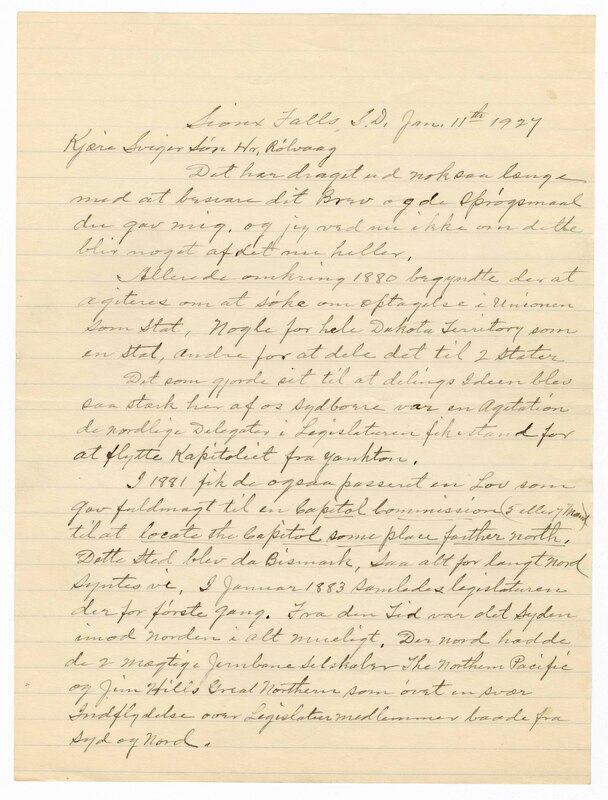 Sioux Falls, S.D, Jan. 11th 1927
Kjære Sviger Søn Hr, Rölvaag
Det har draget ud noksaa længe
med at besvare dit Brev og de Spögsmaal
du gav mig. og jeg ved nu ikke om dette
blir noget af det nu heller.
Allerede omkring 1880 begyndte der at
agiteres om at söke om Optagelse i Unionen
som Stat, Nogle for hele Dakota Territory som
en Stat, andre for at dele det til 2 Stater
Det som gjorde sit til at delings Ideen blev
saa stærk her af os sydboere var en Agitation
de nordlige Delegater i Legislaturen fik istand for
at flytte Kapitoliet fra Yankton.
I 1881 fik de ogsaa passeret en Lov som
gav fuldmagt til en Capitol Commission (5 eller 7 Mand
til at locate the Capitol some place farther north.
Dette Sted blev da Bismark, saa alt for langt Nord
syntes vi, I Januar 1883 samledes legislaturen
der for förste gang. Fra den Tid var det Syden
imod Norden i alt mueligt. Der nord hadde
de 2 mægtige Jernbane Selskaber The Northern Pacific
og Jim Hill's Great Northern som övet en svær
Indflydelse over Legislatur medlemmer baade fra
Syd og Nord.